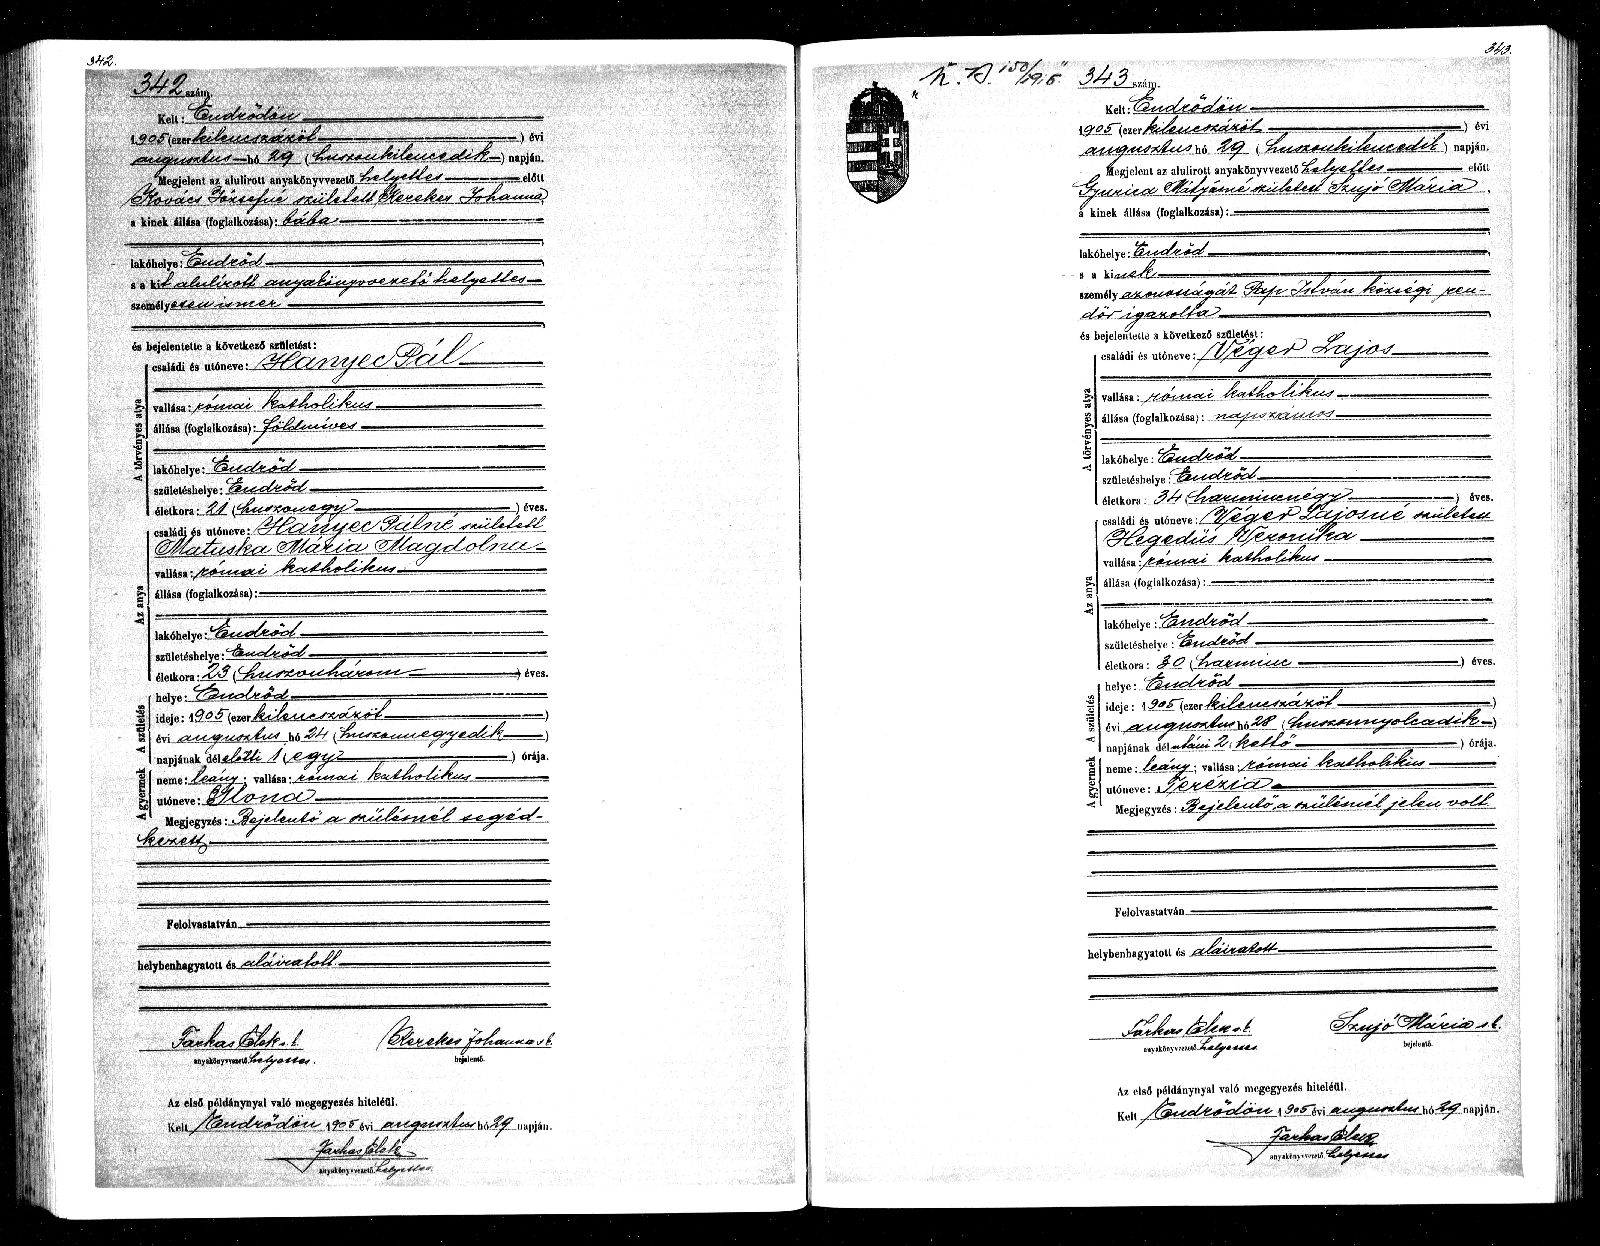 342.
342 szám.
Kelt: Endrődön
1905 (ezer kilenczszázöt) évi
augusztus hó 29 (huszonkilencedik) napján.
Megjelent az alulirott anyakönyvvezető helyettes előtt
Kovács Józsefné született Kerekes Johanna
a kinek állása (foglalkozása): bába
lakóhelye: Endrőd
s a kit alulirott anyakönyvvezető helyettes
személyesen ismer
és bejelentette a következő születést:
A törvényes atya
családi és utóneve: Hanyec Pál
vallása: római katholikus
állása (foglalkozása): földmíves
lakóhelye: Endrőd
születéshelye: Endrőd
életkora: 21 (huszonegy) éves.
Az anya
családi és utóneve: Hanyec Pálné született
Matuska Mária Magdolna
vallása: római katholikus
állása (foglalkozása):
lakóhelye: Endrőd
születéshelye: Endrőd
életkora: 23 (huszonhárom) éves.
A születés
helye: Endrőd
ideje: 1905 (ezer kilencszázöt)
évi augusztus hó 24 (huszonnegyedik)
napjának délelőtti 1 (egy) órája.
A gyermek
neme: leány; vallása: római katholikus
utóneve: Ilona
Megjegyzés: Bejelentő a szülésnél segéd-
kezett
Felolvastatván
helybenhagyatott és aláiratott
Farkas Elek s.k.
anyakönyvvezető helyettes.
Kerekes Johanna s.k.
bejelentő.
Az első példánynyal való megegyezés hiteléül.
Kelt Endrődön 1905 évi augusztus hó 29 napján.
Farkas Elek
anyakönyvvezető helyettes
343.
343 szám.
Kelt: Endrődön
1905 (ezer kilencszázöt) évi
augusztus hó 29 (huszonkilencedik) napján.
Megjelent az alulirott anyakönyvvezető helyettes előtt
Gyurica Mátyásné született Szujó Mária
a kinek állása (foglalkozása):
lakóhelye: Endrőd
s a kinek
személyazonosságát Pap István községi ren-
dőr igazolta
és bejelentette a következő születést:
A törvényes atya
családi és utóneve: Véger Lajos
vallása: római katholikus
állása (foglalkozása): napszámos
lakóhelye: Endrőd
születéshelye: Endrőd
életkora: 34 (harmincnégy) éves.
Az anya
családi és utóneve: Véger Lajosné született
Hegedüs Veronika
vallása: római katholikus
állása (foglalkozása):
lakóhelye: Endrőd
születéshelye: Endrőd
életkora: 30 (harminc) éves.
A születés
helye: Endrőd
ideje: 1905 (ezer kilencszázöt)
évi augusztus hó 28 (huszonnyolcadik)
napjának délutáni 2 (kettő) órája.
A gyermek
neme: leány; vallása: római katholikus
utóneve: Terézia
Megjegyzés: Bejelentő a szülésnél jelen volt
Felolvastatván
helybenhagyatott és aláiratott
Farkas Elek s.k.
anyakönyvvezető helyettes
Szujó Mária s.k.
bejelentő.
Az első példánynyal való megegyezés hiteléül.
Kelt Endrődön 1905 évi augusztus hó 29 napján.
Farkas Elek
anyakönyvvezető helyettes